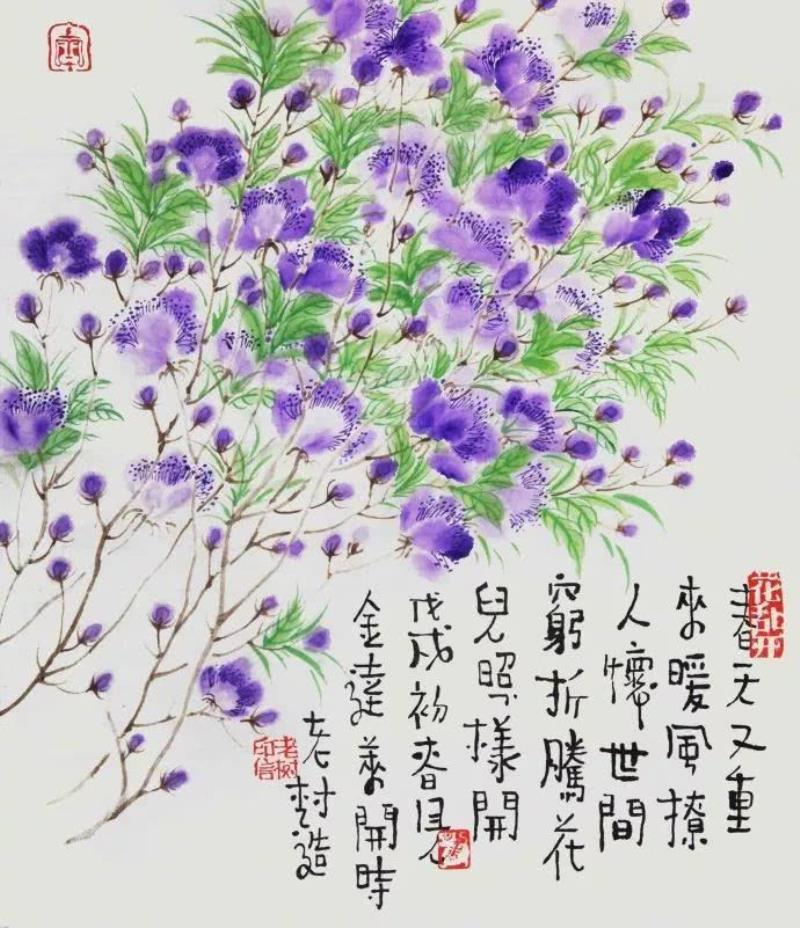 春天又重
來暖風撩
人懷世間
窮折騰花
兒照樣開
戊戌初春見
金達萊開時
老树造
花乱开
老树印信